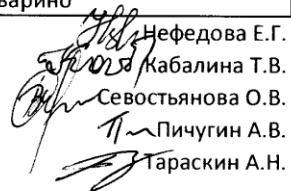 варино
Нефедова Е.Г.
Кабалина Т.В.
Севостьянова О.В.
Пичугин А.В.
Тараскин А.Н.